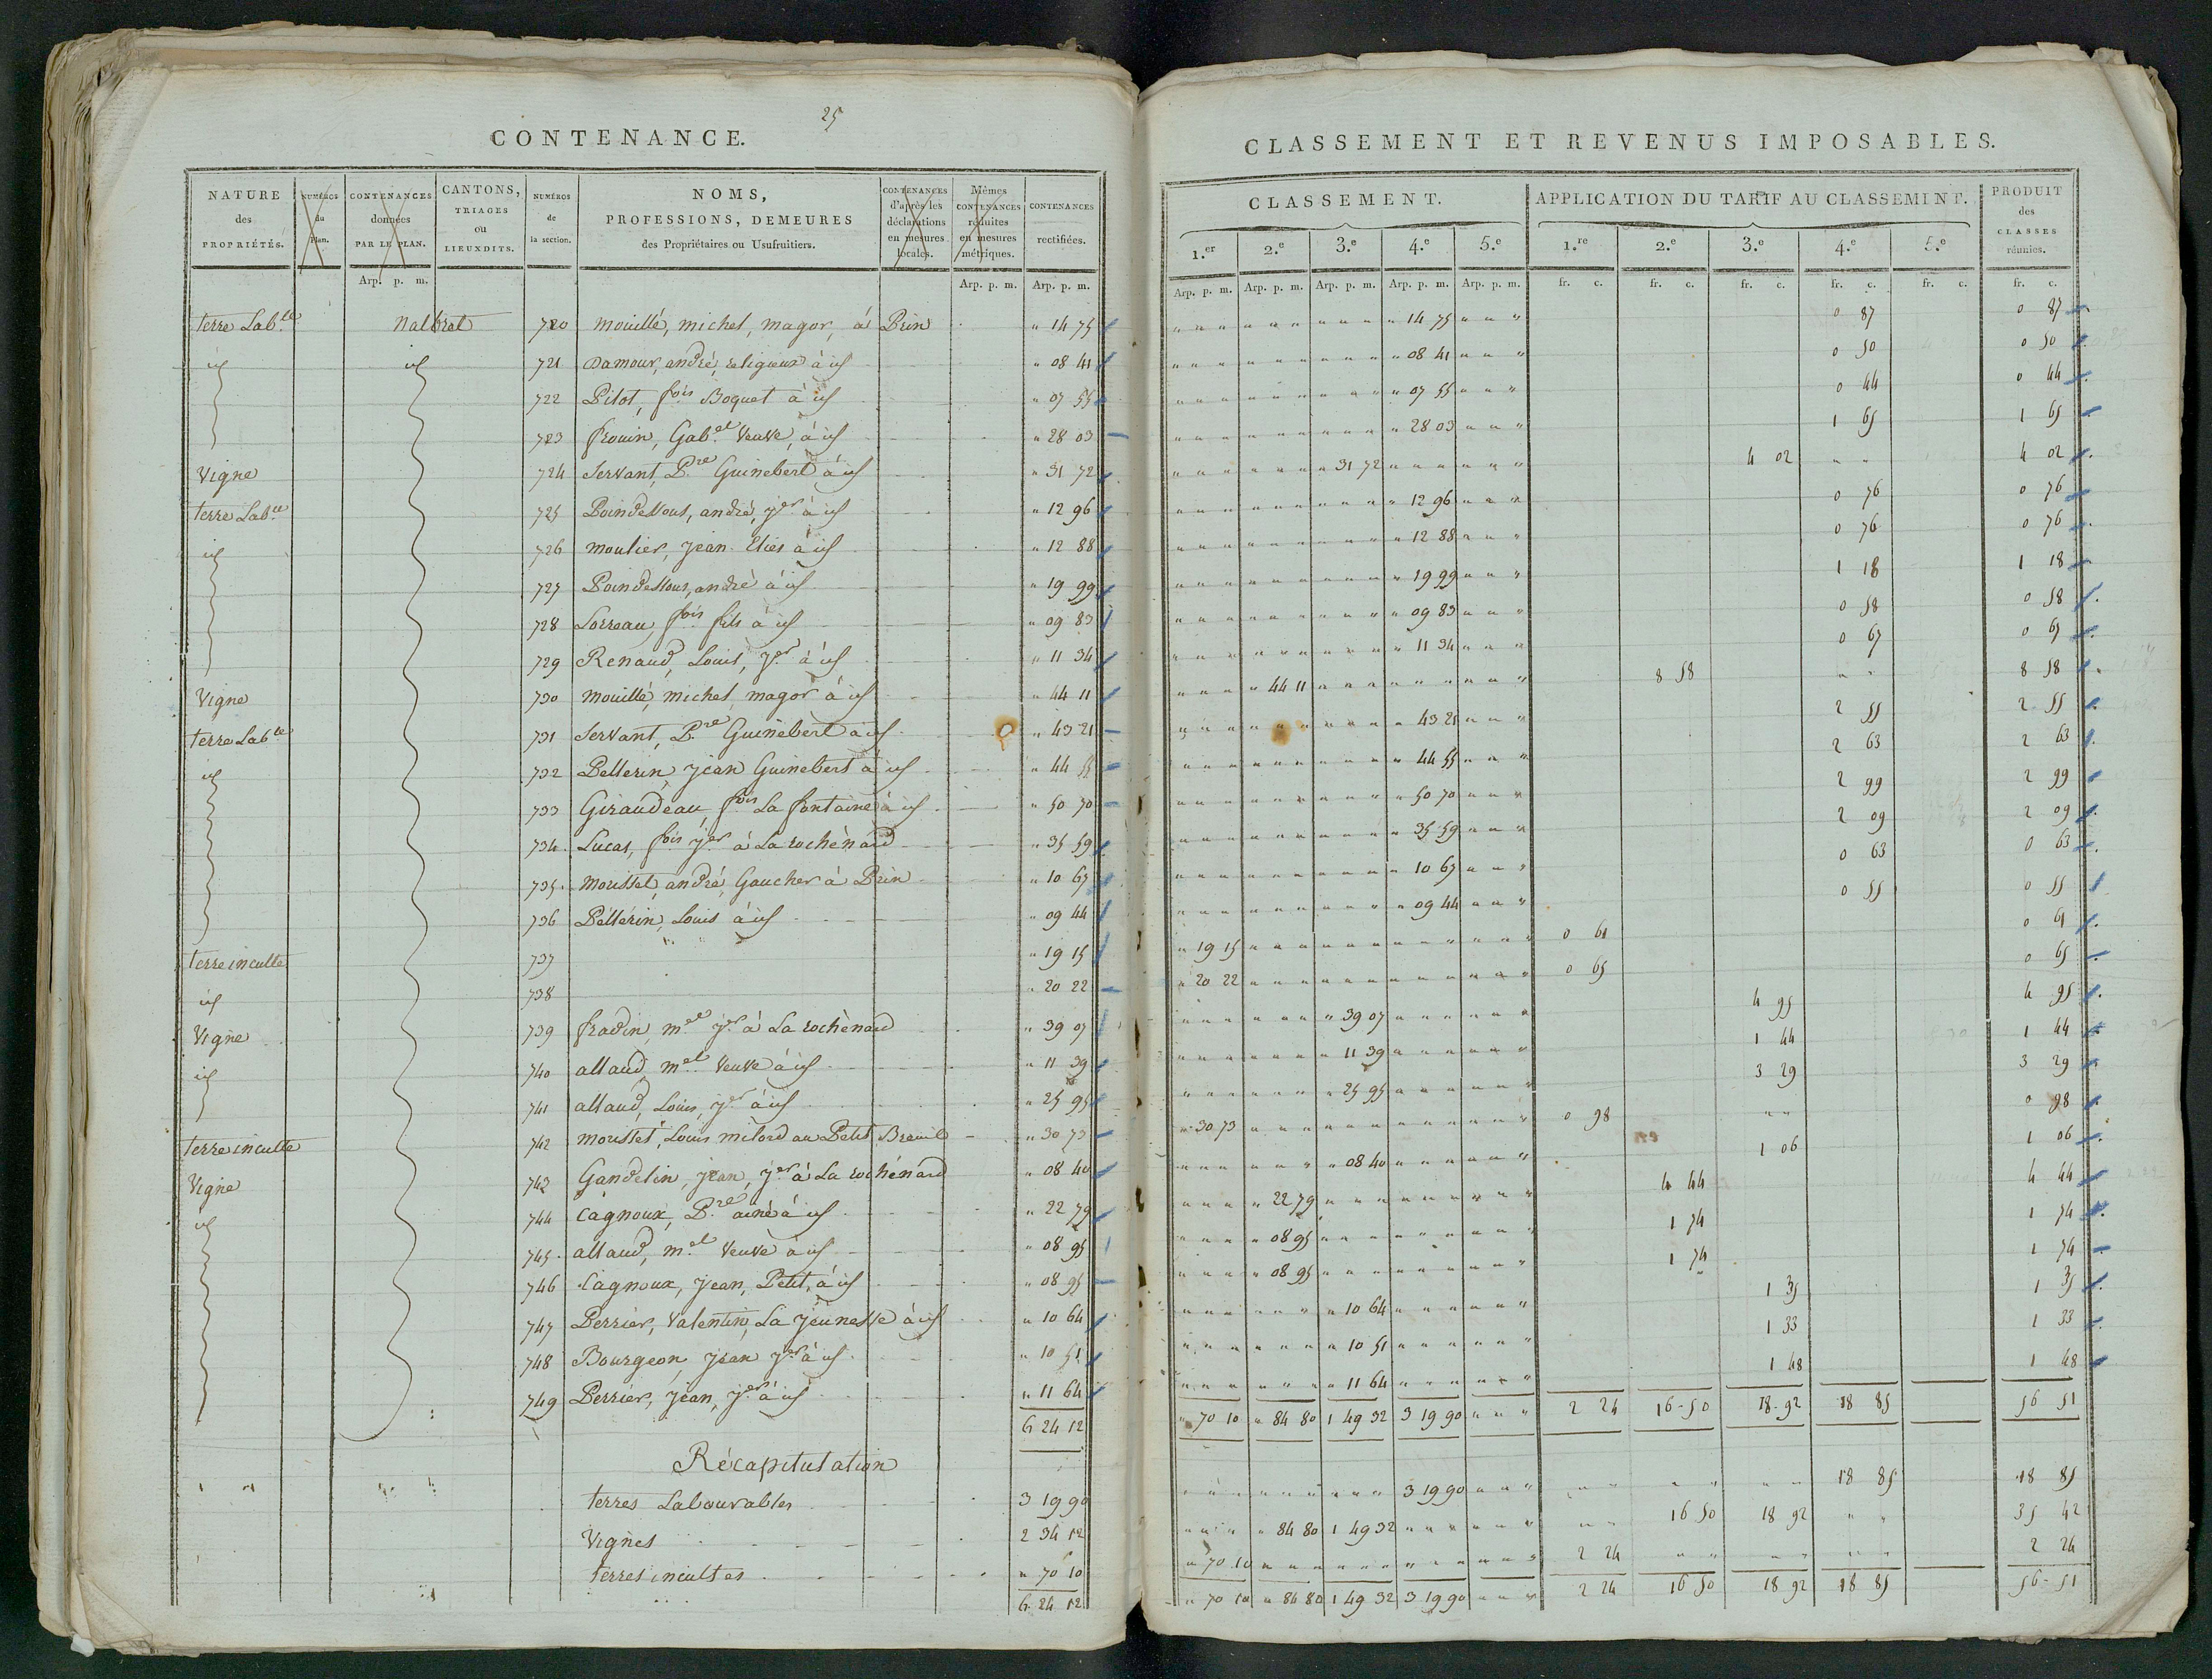 25
CONTENANCE.
NATURE des PROPRIÉTÉS. | NUMÉROS du Plan. | CONTENANCES données PAR LE PLAN. | CANTONS, TRIAGES ou LIEUXDITS. | NUMÉROS de la section. | NOMS, PROFESSIONS, DEMEURES des Propriétaires ou Usufruitiers. | CONTENANCES d'après les déclarations en mesures locales. | Mêmes CONTENANCES réduites en mesures métriques. | CONTENANCES rectifiées.
Arp. p. m. | Arp. p. m. | Arp. p. m.
terre Lab.le Nalbret 720 mouillé, michel, magor, à Brin " 14 75
id id 721 Damour, andré, religieux à id " 08 41
722 Pilot, fois Boquet à id " 07 55
723 frouin, Gab.el Veuve, à id " 28 03
Vigne 724 Servant, P.re Guinebert à id " 31 72
terre Lab.le 725 Poindessous, andré, j.er à id " 12 96
id 726 moulier, Jean Elies à id " 12 88
727 Poindessous, andré à id " 19 99
728 Lorreau, fois fils à id " 09 83
729 Renaud, Louis, j.er à id " 11 34
Vigne 730 mouillé, michel, magor à id " 44 11
terre Lab.le 731 Servant, P.re Guinebert à id " 43 21
id 732 Pellerin, Jean Guinebert à id " 44 55
733 Giraudeau, fois La fontaine à id " 50 70
734 Lucas, fois j.er à La rochènard " 35 59
735 mousset, andré, Gaucher à Brin " 10 67
736 Péllérin, Louis à id " 09 44
terre inculte 737 " 19 15
id 738 " 20 22
Vigne 739 fradin, m.el j.er à La rochènard " 39 07
id 740 allaud, m.el Veuve à id " 11 39
741 allaud, Louis, j.er à id " 25 95
terre inculte 742 mousset, Louis milord au Petit Breuil " 30 73
Vigne 743 Gandelin, jean, j.er à La rochénard " 08 40
id 744 Cagnoux, P.re ainé à id " 22 79
745 allaud, m.el Veuve à id " 08 95
746 Cagnoux, Jean, Petit, à id " 08 95
747 Perrier, Valentin, La jeunesse à id " 10 64
748 Bourgeon, Jean j.er à id " 10 51
749 Perrier, jean, j.er à id " 11 64
6 24 12
Récapitulation
terres Labourables 3 19 90
Vignes 2 34 12
terres incultes " 70 10
6 24 12
CLASSEMENT ET REVENUS IMPOSABLES.
CLASSEMENT. | APPLICATION DU TARIF AU CLASSEMENT. | PRODUIT des CLASSES réunies.
1.er | 2.e | 3.e | 4.e | 5.e | 1.re | 2.e | 3.e | 4.e | 5.e
Arp. p. m. | Arp. p. m. | Arp. p. m. | Arp. p. m. | Arp. p. m. | fr. c. | fr. c. | fr. c. | fr. c. | fr. c. | fr. c.
" 14 75 0 87 0 87
" 08 41 0 50 0 50
" 07 55 0 44 0 44
" 28 03 1 65 1 65
" 31 72 4 02 " " 4 02
" 12 96 0 76 0 76
" 12 88 0 76 0 76
" 19 99 1 18 1 18
" 09 83 0 58 0 58
" 11 34 0 67 0 67
" 44 11 8 58 " " 8 58
" 43 21 2 55 2 55
" 44 55 2 63 2 63
" 50 70 2 99 2 99
" 35 59 2 09 2 09
" 10 67 0 63 0 63
" 09 44 0 55 0 55
" 19 15 0 61 0 61
" 20 22 0 65 0 65
" 39 07 4 95 4 95
" 11 39 1 44 1 44
" 25 95 3 29 3 29
" 30 73 0 98 " " 0 98
" 08 40 1 06 1 06
" 22 79 4 44 4 44
" 08 95 1 74 1 74
" 08 95 1 74 1 74
" 10 64 1 35 1 35
" 10 51 1 33 1 33
" 11 64 1 48 1 48
" 70 10 " 84 80 1 49 32 3 19 90 " " " 2 24 16-50 18-92 18 85 56 51
3 19 90 " " " 18 85 18 85
" 84 80 1 49 32 16 50 18 92 " " 35 42
" 70 10 2 24 " " 2 24
" 70 10 " 84 80 1 49 32 3 19 90 " " " 2 24 16 50 18 92 18 85 56-51